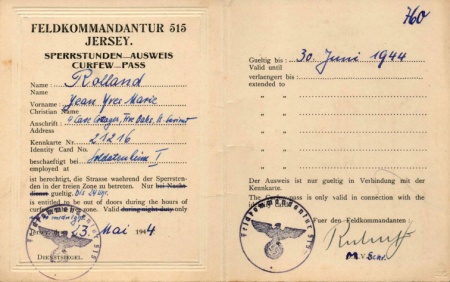 FELDKOMMANDANTUR 515
JERSEY.
SPERRSTUNDEN-AUSWEIS
CURFEW-PASS
Name : Rolland
Name
Vorname : Jean Yves Marie
Christian Name
Anschrift : 4 Cottages, Five Oaks, St
Address
Kennkarte Nr. 21216
Identity Card No.
beschaeftigt bei Soldatenheim I
employed at
ist berechtigt, die Strasse waehrend der Sperrstun-
den in der freien Zone zu betreten. Nur bei Nacht-
dienst
is entitled to be out of doors during the hours of
curfew zone. Valid during night duty only
23. Mai 1944
DIENSTSIEGEL.
Feldkommandantur 515
760
Gueltig bis : 30. Juni 1944
Valid until
verlaengert bis :
extended to
" "
" "
" "
" "
" "
" "
" "
Der Ausweis ist nur gueltig in Verbindung mit der
Kennkarte.
The pass is only valid in connection with the
Fuer den Feldkommandanten :
Feldkommandantur 515
M.V.